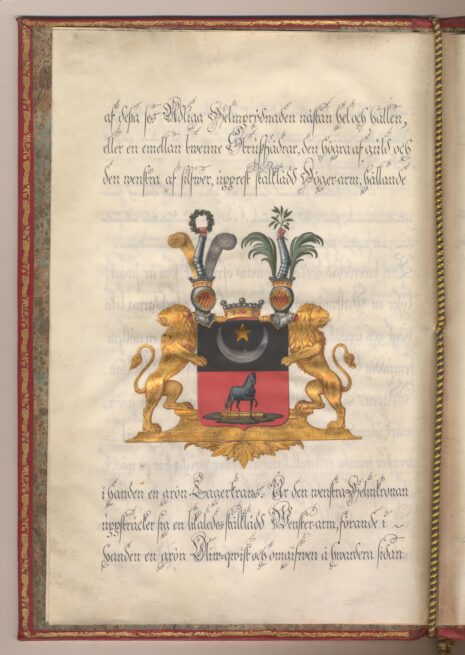 af deßa ses Adliga Hjelmprydnaden nästan hel och hållen,
eller en emellan twenne Strussfjädrar, den högra af guld och
den wenstra af silfwer, upprest stålklädd Höger-arm, hållande
i handen en grön Lagerkrans. Ur den wenstra Hjelmkronan
uppsträcker sig en likaledes stålklädd Wenster-arm, förande i
handen en grön Oliv-qwist och omgifwen å hwardera sidan